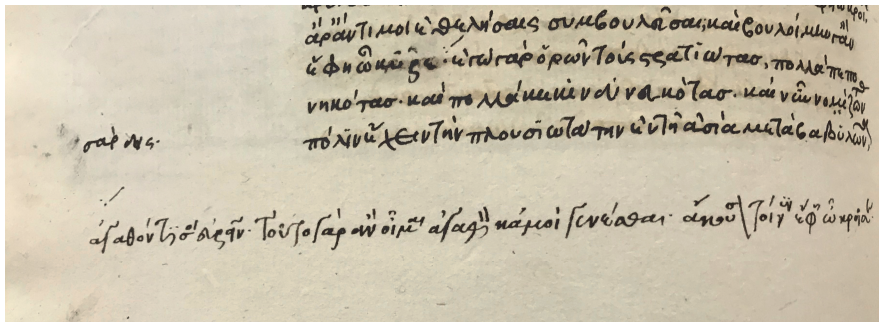 ἆρἄντι μοι ἐθελήσαις συμβουλεῦσαι; καὶ βουλοίμην γἂν
ἔφη ὦ κῦρε· ἐγὼ γὰρ ὁρῶν τοὺς στρατιώτας, πολλὰ πεπο
νηκότας· καὶ πολλὰ κεκινδυνευκότας· καὶ νῦν νομίζον
πόλιν ἔχειν τὴν πλουσιωτάτην ἐν τῆ ἀσία μετὰ βαβυλῶνα
σάρδεις·
ἀγαθόν τι σοι εὑρεῖν· τοῦτο γὰρ ἂν οἶμαι ἀγαθὸν κἀμοὶ γενέσθαι· ἄκουσον τοίνυν ἔφη ὦ κροῖσε